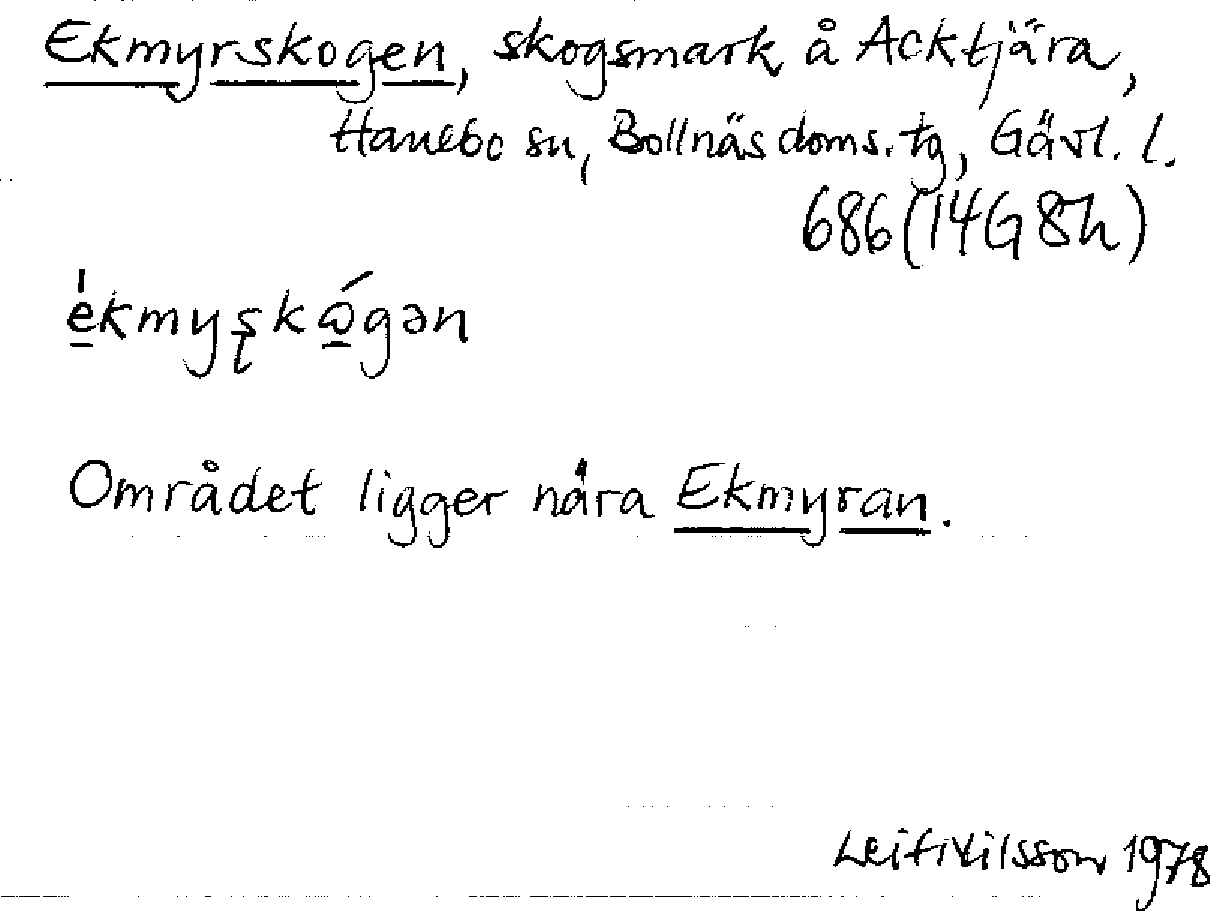 Ekmyrskogen, skogsmark å Acktjära,
Hanebo sn, Bollnäs doms. tg, Gävl. l.
686 (14G 8h)
ékmyʂkɷ́gən
Området ligger nära Ekmyran.
Leif Nilsson 1978